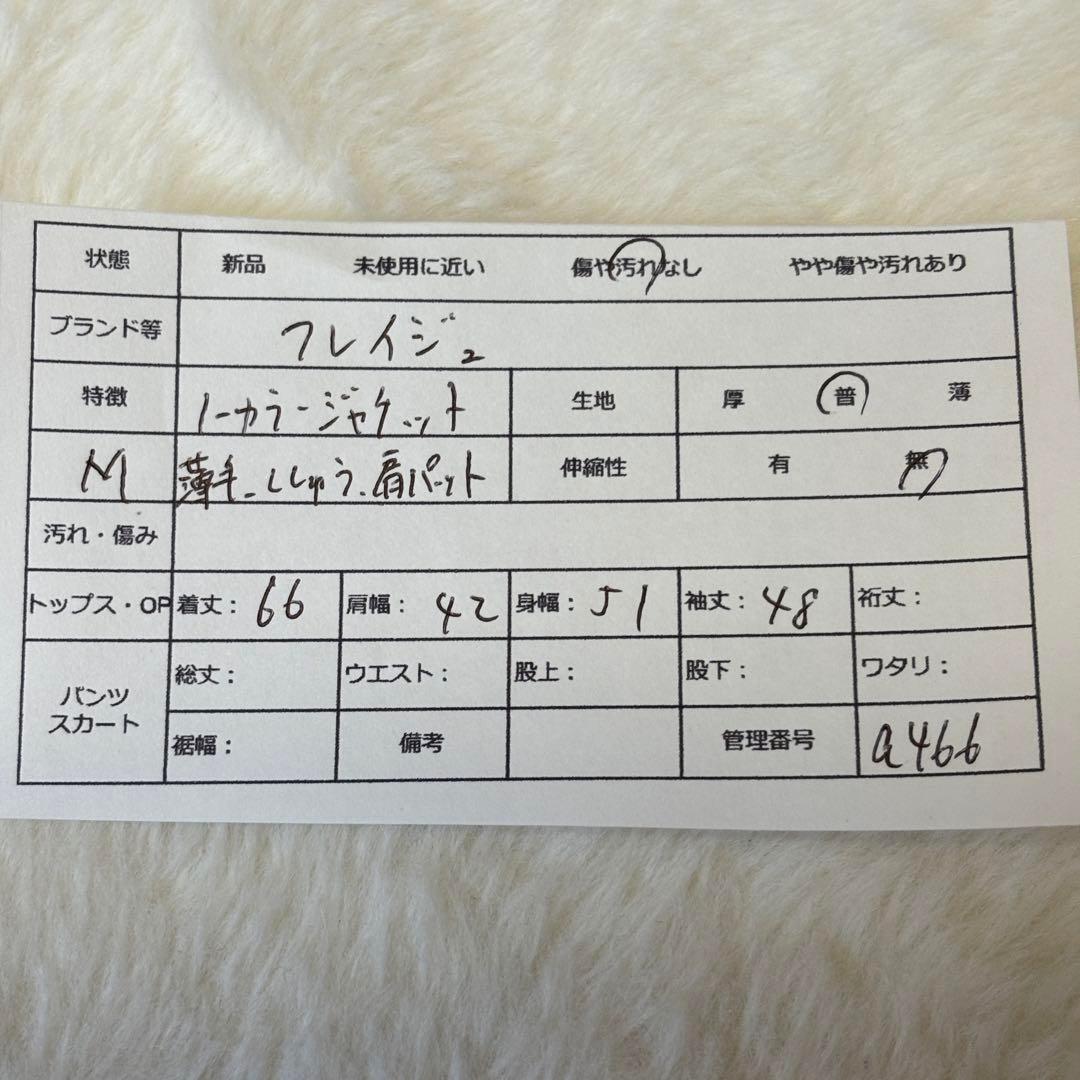 状態 新品 未使用に近い 傷や汚れなし やや傷や汚れあり
ブランド等 フレイジュ
特徴 ノーカラージャケット 生地 厚 普 薄
M 薄手、ししゅう、肩パット 伸縮性 有 無
汚れ・傷み
トップス・OP 着丈: 66 肩幅: 42 身幅: 51 袖丈: 48 裄丈:
パンツ 総丈: ウエスト: 股上: 股下: ワタリ:
スカート 裾幅: 備考 管理番号 a466